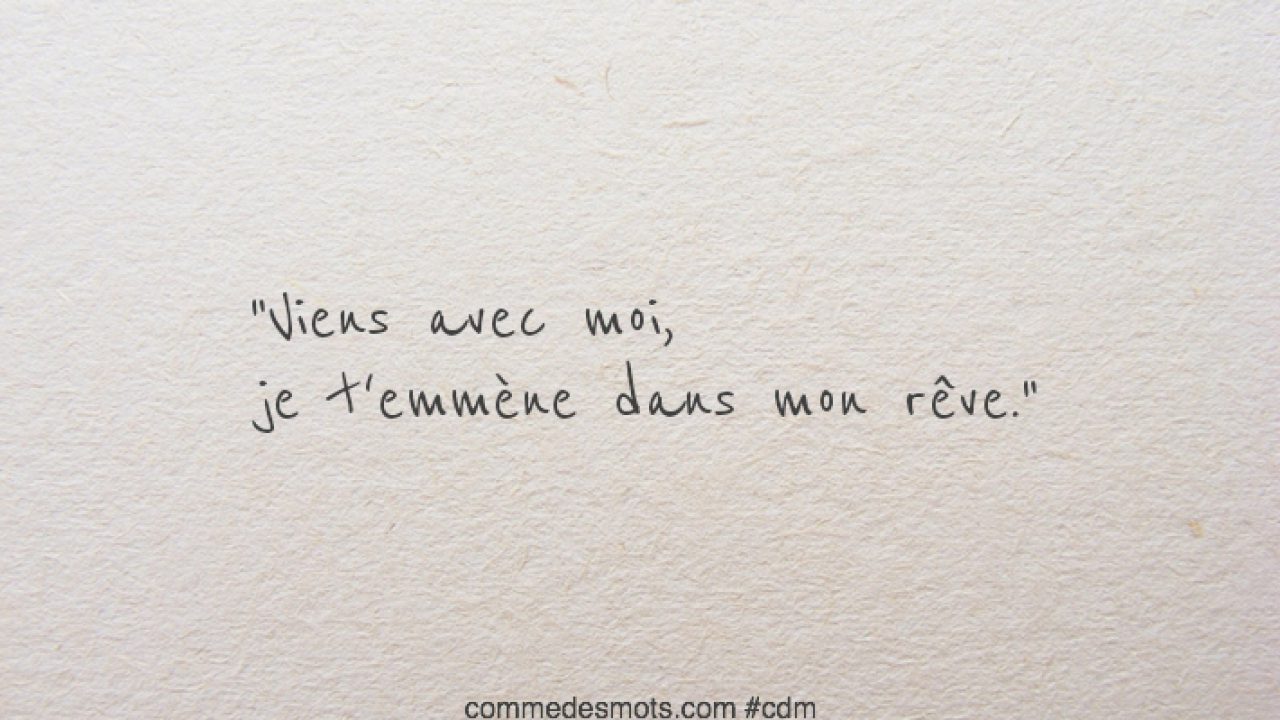 "Viens avec moi,
je t'emmène dans mon rêve."
commedesmots.com #cdm